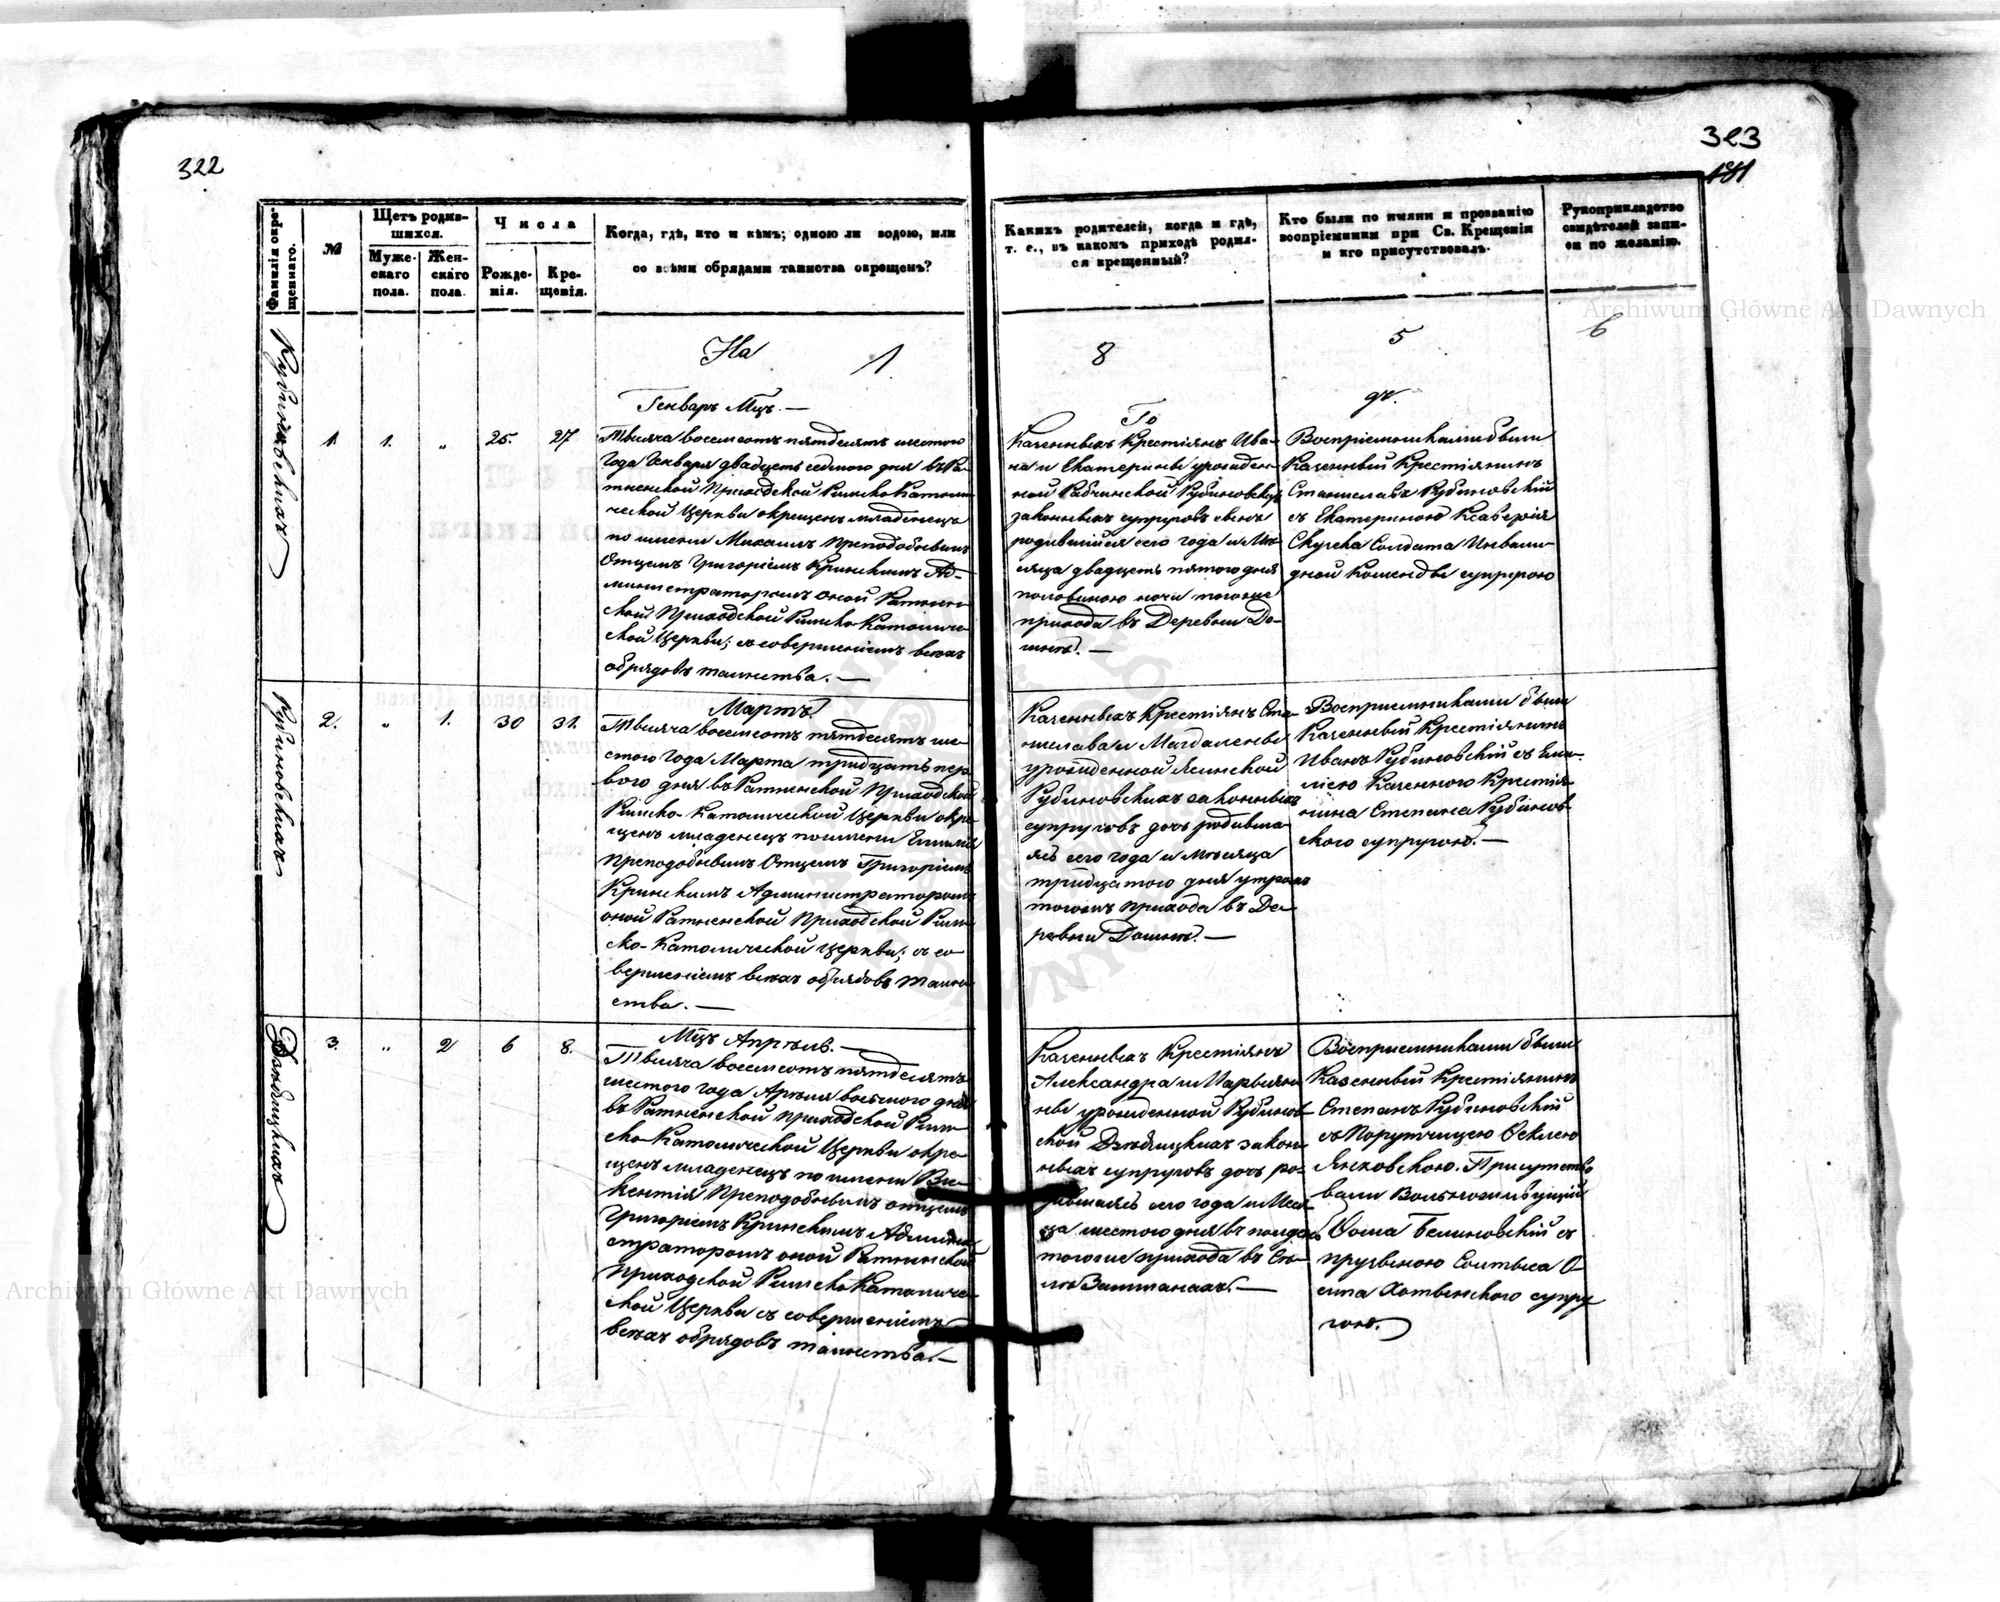 322
323
181
Фамилія окре-
щеннаго.
№
Щетъ родив-
шихся.
Муже-
скаго
пола.
Жен-
скаго
пола.
Числа
Рожде-
нія.
Кре-
щенія.
Когда, гдѣ, кто и кѣмъ; одною ли водою, или
со всѣми обрядами таинства окрещенъ?
Какихъ родителей, когда и гдѣ,
т. е., въ какомъ приходѣ родил-
ся крещенный?
Кто были по имяни и прозванію
воспріемники при Св. Крещеніи
и кто присутствовалъ.
Рукоприкладство
свидѣтелей запи-
си по желанію.
На 1 8 5 6
Генварь Мцъ. —
То
Рубиновскихъ
1. 1. „ 25. 27
Тысяча восемсотъ пятдесятъ шестого
года Генваря двадцеть седмого дня въ Ра-
тненской Приходской Римско Католи-
ческой Церкви окрещенъ младенецъ
по имени Михаилъ Преподобнымъ
Отцемъ Григоріемъ Кринскимъ Ад-
министраторомъ оной Ратнен-
ской Приходской Римско Католиче-
ской Церкви; съ совершеніемъ всѣхъ
обрядовъ таинства. —
Казенныхъ Крестіянъ Ива-
на и Екатерины урожден-
ной Рабчинской Рубиновских
законныхъ супруговъ сынъ
родившійся сего года и Мѣ-
сяца двадцеть пятого дня
половиною ночи тогоже
прихода въ Деревни До-
Воспріемниками были
Казенный Крестіянинъ
Станиславъ Рубиновскій
съ Екатериною Ксаверія
Солдата Инвали-
дной Команды супругою
Рубиновскихъ
2. „ 1. 30 31.
Мартъ
Тысяча восемсотъ пятдесятъ ше-
стого года Марта тридцать пер
вого дня въ Ратненской Приходской
Римско-Католической Церкви окре-
щенъ младенецъ по имени Емилія
Преподобнымъ Отцемъ Григоріемъ
Кринскимъ Администраторомъ
оной Ратненской Приходской Рим-
ско-Католической Церкви; съ со-
вершеніемъ всѣхъ обрядовъ таин-
ства. —
Казенныхъ Крестіянъ Ста-
нислава и Магдалены
урожденной Ясинской
Рубиновскихъ законныхъ
супруговъ дочь родивша-
ясь сего года и Мѣсяца
тридцатого дня утромъ
тогожъ прихода въ Де-
ревни —
Воспріемниками были
Казенный Крестіянинъ
Иванъ Рубиновскій съ Еми-
ліею Казенного Крестія-
нина Степана Рубинов-
ского супругою. —
3. „ 2 6 8.
Мцъ Апрѣль. —
Тысяча восемсотъ пятдесятъ
шестого года Апрѣля восьмого дня
въ Ратненской Приходской Рим-
ско-Католической Церкви окре-
щенъ младенецъ по имени Ви-
кентія Преподобнымъ отцемъ
Григоріемъ Кринскимъ Админи-
страторомъ оной Ратненской
Приходской Римско Католиче-
ской Церкви съ совершеніемъ
всѣхъ обрядовъ таинства. —
Казенныхъ Крестіянъ
Александра и Марьян-
ны урожденной Рубинов-
ской закон-
ныхъ супруговъ дочь ро-
дившаясь сего года и Меся-
ца шестого дня въ
тогоже прихода въ Се-
лѣ —
Воспріемниками были
Казенный Крестіянинъ
Степанъ Рубиновскій
съ Порутчицею Феклею
Янковскою. Присутство-
вали
Фома Белиновскій съ
супру-
гою.
Archiwum Główne Akt Dawnych
Archiwum Główne Akt Dawnych